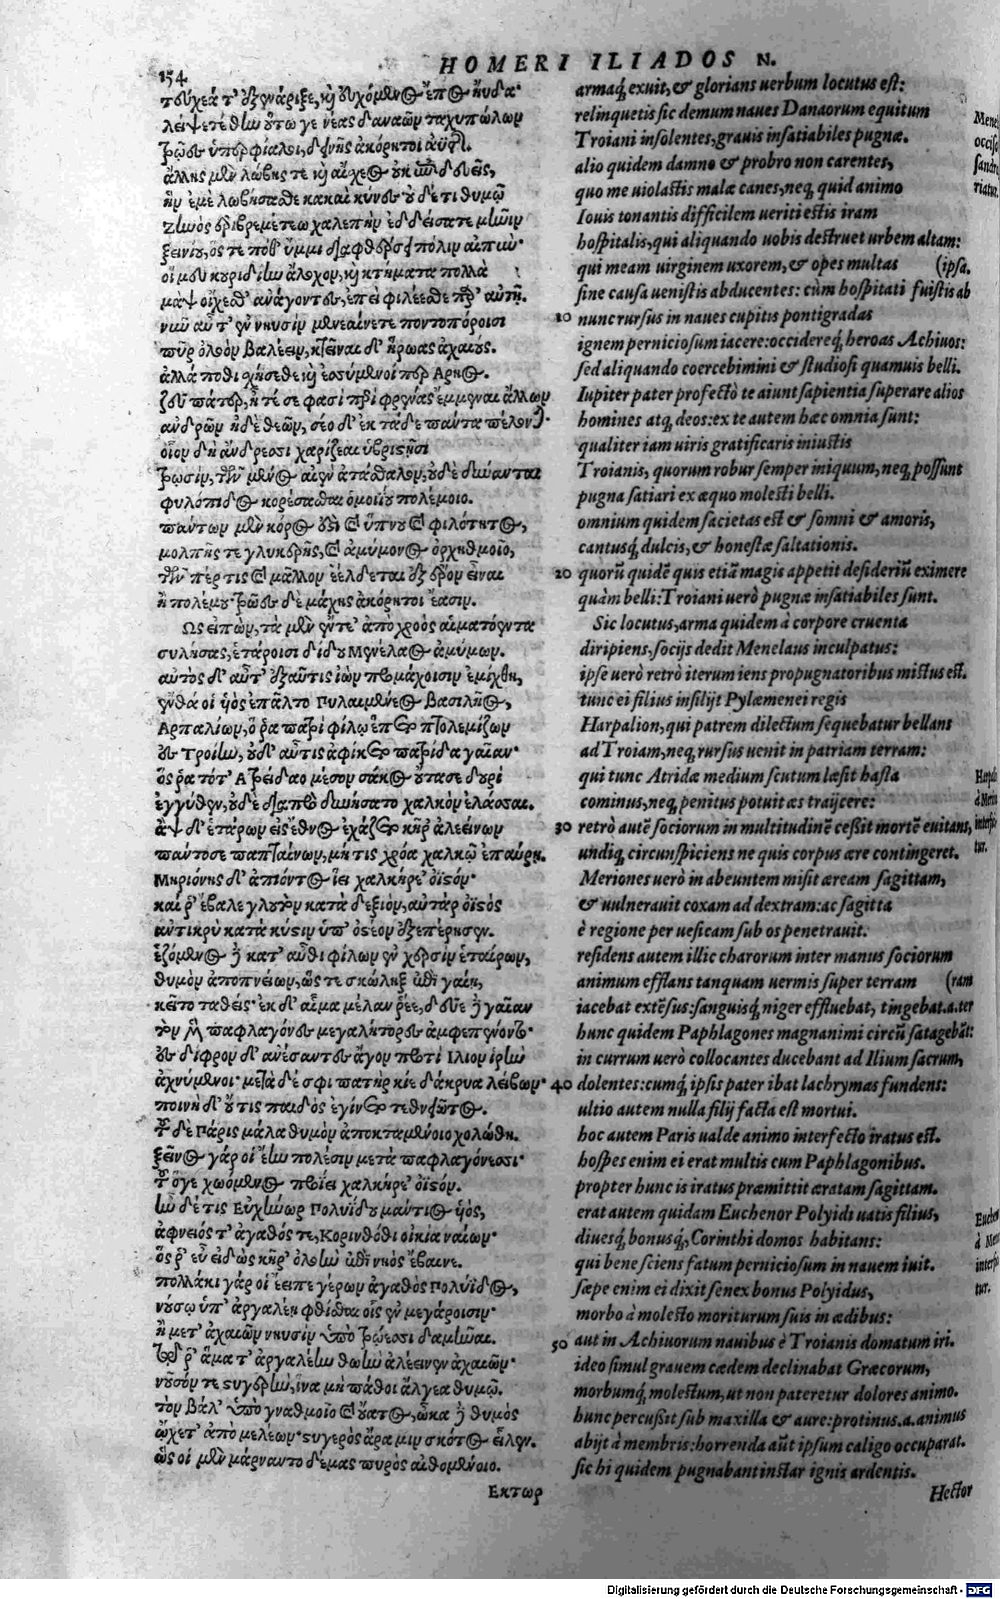 154
HOMERI ILIADOS N.
τεύχεά τ' ἐξενάριξε, καὶ εὐχόμενος ἔπος ηὔδα·
λείψετέ θην οὕτω γε νέας δαναῶν ταχυπώλων
Τρῶες ὑπερφίαλοι, δεινῆς ἀκόρητοι ἀϋτῆς.
ἄλλης μὲν λώβης τε καὶ αἴχεος οὐκ ἐπιδευεῖς,
ἣν ἐμὲ λωβήσασθε κακαὶ κύνες οὐδέ τι θυμῷ
Ζηνὸς ἐριβρεμέτεω χαλεπὴν ἐδδείσατε μῆνιν
ξεινίου, ὅς τε ποθ' ὔμμι διαφθέρσει πόλιν αἰπὺν·
οἵ μευ κουριδίην ἄλοχον, καὶ κτήματα πολλὰ
μὰψ οἴχεσθ' ἀνάγοντες, ἐπεὶ φιλέεσθε παρ' αὐτῇ.
νῦν αὖτ' ἐν νηυσὶν μενεαίνετε ποντοπόροισι
πῦρ ὀλοὸν βαλέειν, κτεῖναι δ' ἥρωας ἀχαιούς.
ἀλλά ποθι σχήσεθε καὶ ἐσσύμενοί περ Ἄρηος.
ζεῦ πάτερ, ἦ τέ σε φασὶ περὶ φρένας ἔμμεναι ἄλλων
ἀνδρῶν ἠδὲ θεῶν, σέο δ' ἐκ τάδε πάντα πέλονται·
οἷον δὴ ἄνδρεσσι χαρίζεαι ὑβριστῇσι
Τρωσὶν, τῶν μένος αἰὲν ἀτάσθαλον, οὐδὲ δύνανται
φυλόπιδος κορέσασθαι ὁμοιΐου πολέμοιο.
πάντων μὲν κόρος ἐστὶ καὶ ὕπνου καὶ φιλότητος,
μολπῆς τε γλυκερῆς, καὶ ἀμύμονος ὀρχηθμοῖο,
τῶν πέρ τις καὶ μᾶλλον ἐέλδεται ἐξ ἔρον εἶναι
ἢ πολέμου· Τρῶες δὲ μάχης ἀκόρητοι ἔασιν.
Ὣς εἰπὼν, τὰ μὲν ἔντε' ἀπὸ χροὸς αἱματόεντα
συλήσας, ἑτάροισι δίδου Μενέλαος ἀμύμων.
αὐτὸς δ' αὖτ' ἐξαῦτις ἰὼν προμάχοισιν ἐμίχθη,
ἔνθά οἱ υἱὸς ἐπᾶλτο Πυλαιμένεος βασιλῆος,
Ἁρπαλίων, ὅ ῥα πατρὶ φίλῳ ἕπετο πτολεμίζων
ἐς Τροίην, οὐδ' αὖτις ἀφίκετο πατρίδα γαῖαν·
ὅς ῥα τότ' Ἀτρείδαο μέσον σάκος οὔτασε δουρὶ
ἐγγύθεν, οὐδὲ διαπρὸ δυνήσατο χαλκὸν ἐλάσσαι.
ἂψ δ' ἑτάρων εἰς ἔθνος ἐχάζετο κῆρ' ἀλεείνων
πάντοσε παπταίνων, μή τις χρόα χαλκῷ ἐπαύρῃ.
Μηριόνης δ' ἀπιόντος ἵει χαλκήρε' ὀϊστόν·
καί ῥ' ἔβαλε γλουτὸν κατὰ δεξιὸν, αὐτὰρ ὀϊστὸς
ἀντικρὺ κατὰ κύστιν ὑπ' ὀστέον ἐξεπέρησεν.
ἑζόμενος δὲ κατ' αὖθι φίλων ἐν χερσὶν ἑταίρων,
θυμὸν ἀποπνείων, ὥς τε σκώληξ ἐπὶ γαίῃ,
κεῖτο ταθείς· ἐκ δ' αἷμα μέλαν ῥέε, δεῦε δὲ γαῖαν
τὸν μὲν παφλαγόνες μεγαλήτορες ἀμφεπένοντο·
ἐς δίφρον δ' ἀνέσαντες ἄγον προτὶ Ἴλιον ἱρὴν
ἀχνύμενοι· μετὰ δέ σφι πατὴρ κίε δάκρυα λείβων·
ποινὴ δ' οὔ τις παιδὸς ἐγίνετο τεθνεῶτος.
τοῦ δὲ Πάρις μάλα θυμὸν ἀποκταμένοιο χολώθη.
ξεῖνος γάρ οἱ ἔην πολέσιν μετὰ παφλαγόνεσσι·
τοῦ ὅγε χωόμενος προΐει χαλκήρε' ὀϊστόν.
ἦν δέ τις Εὐχήνωρ Πολυΐδου μάντιος υἱὸς,
ἀφνειός τ' ἀγαθός τε, Κορινθόθι οἰκία ναίων·
ὅς ῥ' εὖ εἰδὼς κῆρ' ὀλοὴν ἐπὶ νηὸς ἔβαινε.
πολλάκι γάρ οἱ ἔειπε γέρων ἀγαθὸς Πολύϊδος,
νούσῳ ὑπ' ἀργαλέῃ φθίσθαι οἷς ἐν μεγάροισιν·
ἢ μετ' ἀχαιῶν νηυσὶν ὑπὸ Τρώεσσι δαμῆναι.
τῷ ῥ' ἅμα τ' ἀργαλέην θωὴν ἀλέεινεν ἀχαιῶν·
νοῦσόν τε στυγερὴν, ἵνα μὴ πάθοι ἄλγεα θυμῷ.
τὸν βάλ' ὑπὸ γναθμοῖο καὶ οὔατος, ὦκα δὲ θυμὸς
ᾤχετ' ἀπὸ μελέων· στυγερὸς δ' ἄρα μιν σκότος εἷλεν.
ὣς οἱ μὲν μάρναντο δέμας πυρὸς αἰθομένοιο.
Εκτωρ
armaq́; exuit, & glorians uerbum locutus est:
relinquetis sic demum naues Danaorum equitum
Troiani insolentes, grauis insatiabiles pugnæ.
alio quidem damno & probro non carentes,
quo me uiolastis malæ canes, neq; quid animo
Iouis tonantis difficilem ueriti estis iram
hospitalis, qui aliquando uobis destruet urbem altam:
qui meam uirginem uxorem, & opes multas (ipsa.
sine causa uenistis abducentes: cùm hospitati fuistis ab
10 nunc rursus in naues cupitis pontigradas
ignem perniciosum iacere: occidereq́; heroas Achiuos:
sed aliquando coercebimini & studiosi quamuis belli.
Iupiter pater profectò te aiunt sapientia superare alios
homines atq; deos: ex te autem hæc omnia sunt:
qualiter iam uiris gratificaris iniustis
Troianis, quorum robur semper iniquum, neq; possunt
pugna satiari ex æquo molesti belli.
omnium quidem sacietas est & somni & amoris,
cantusq́; dulcis, & honestæ saltationis.
20 quorũ quidẽ quis etiã magis appetit desideriũ eximere
quàm belli: Troiani uerò pugnæ insatiabiles sunt.
Sic locutus, arma quidem à corpore cruenta
diripiens, socijs dedit Menelaus inculpatus:
ipse uerò retrò iterum iens propugnatoribus mistus est.
tunc ei filius insilijt Pylæmenei regis
Harpalion, qui patrem dilectum sequebatur bellans
ad Troiam, neq; rursus uenit in patriam terram:
qui tunc Atridæ medium scutum læsit hasta
cominus, neq; penitus potuit æs traijcere:
30 retrò autẽ sociorum in multitudinẽ cessit mortẽ euitans,
undiq; circunspiciens ne quis corpus ære contingeret.
Meriones uerò in abeuntem misit æream sagittam,
& uulnerauit coxam ad dextram: ac sagitta
è regione per uesicam sub os penetrauit.
residens autem illic charorum inter manus sociorum
animum efflans tanquam uermis super terram (ram
iacebat extẽsus: sanguisq́; niger effluebat, tingebat.a.ter
hunc quidem Paphlagones magnanimi circũ satagebãt:
in currum uerò collocantes ducebant ad Ilium sacrum,
40 dolentes: cumq́; ipsis pater ibat lachrymas fundens:
ultio autem nulla filij facta est mortui.
hoc autem Paris ualde animo interfecto iratus est.
hospes enim ei erat multis cum Paphlagonibus.
propter hunc is iratus præmittit æratam sagittam.
erat autem quidam Euchenor Polyidi uatis filius,
diuesq́; bonusq́;, Corinthi domos habitans:
qui bene sciens fatum perniciosum in nauem iuit.
sæpe enim ei dixit senex bonus Polyidus,
morbo à molesto moriturum suis in ædibus:
50 aut in Achiuorum nauibus è Troianis domatum iri.
ideo simul grauem cædem declinabat Græcorum,
morbumq́; molestum, ut non pateretur dolores animo.
hunc percussit sub maxilla & aure: protinus.a.animus
abijt à membris: horrenda aũt ipsum caligo occuparat.
sic hi quidem pugnabant instar ignis ardentis.
Hector
Digitalisierung gefördert durch die Deutsche Forschungsgemeinschaft - DFG